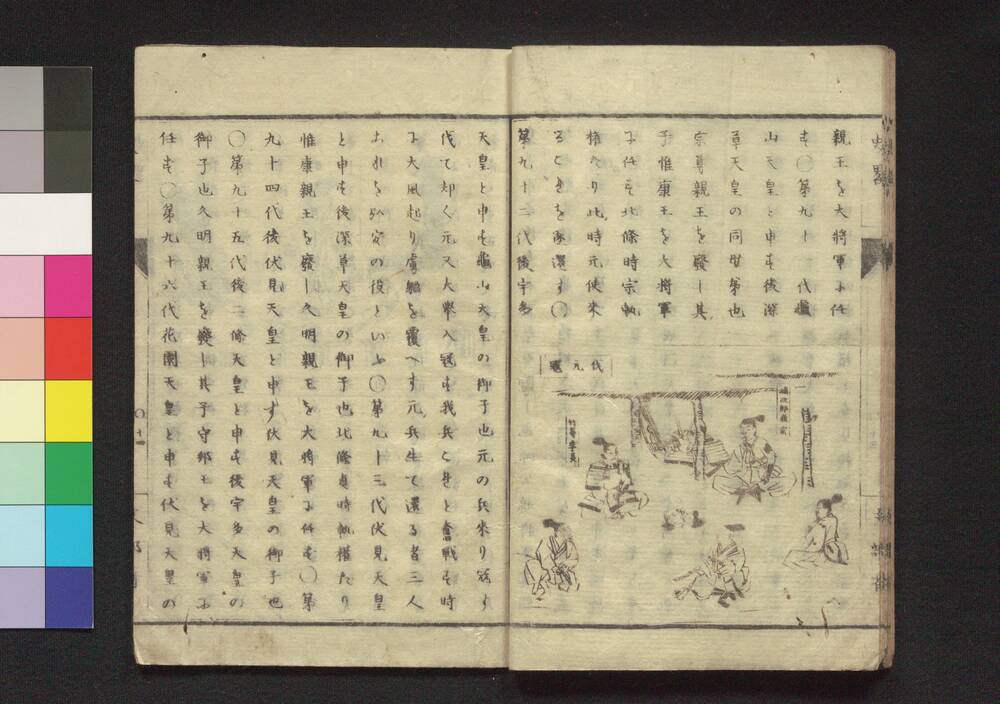 親王を大将軍に任
す〇第九十一代龜
山天皇と申す後深
草天皇の同母弟也
宗尊親王を廢し其
子惟康王を大将軍
に任す北條時宗執
權たり此時元使来
ることを逐還す〇
第九十二代後宇多
伐元冦
竹崎季長
天皇と申す龜山天皇の御子也元の兵来り冦す
伐て却く元又大擧入冠す我兵と奮戰す時
に大風起り虜艦を覆へす元兵生て還る者三人
これを弘安の役といふ〇第九十三代伏見天皇
と申す後深草天皇の御子也北條貞時執權たり
惟康親王を廢し久明親王を大将軍に任す〇第
九十四代後伏見天皇と申す伏見天皇の御子也
〇第九十五代後二條天皇と申す後宇多天皇の
御子也久明親王を廢し其子守邦王を大将軍に
任す〇第九十六代花園天皇と申す伏見天皇の
〇十四